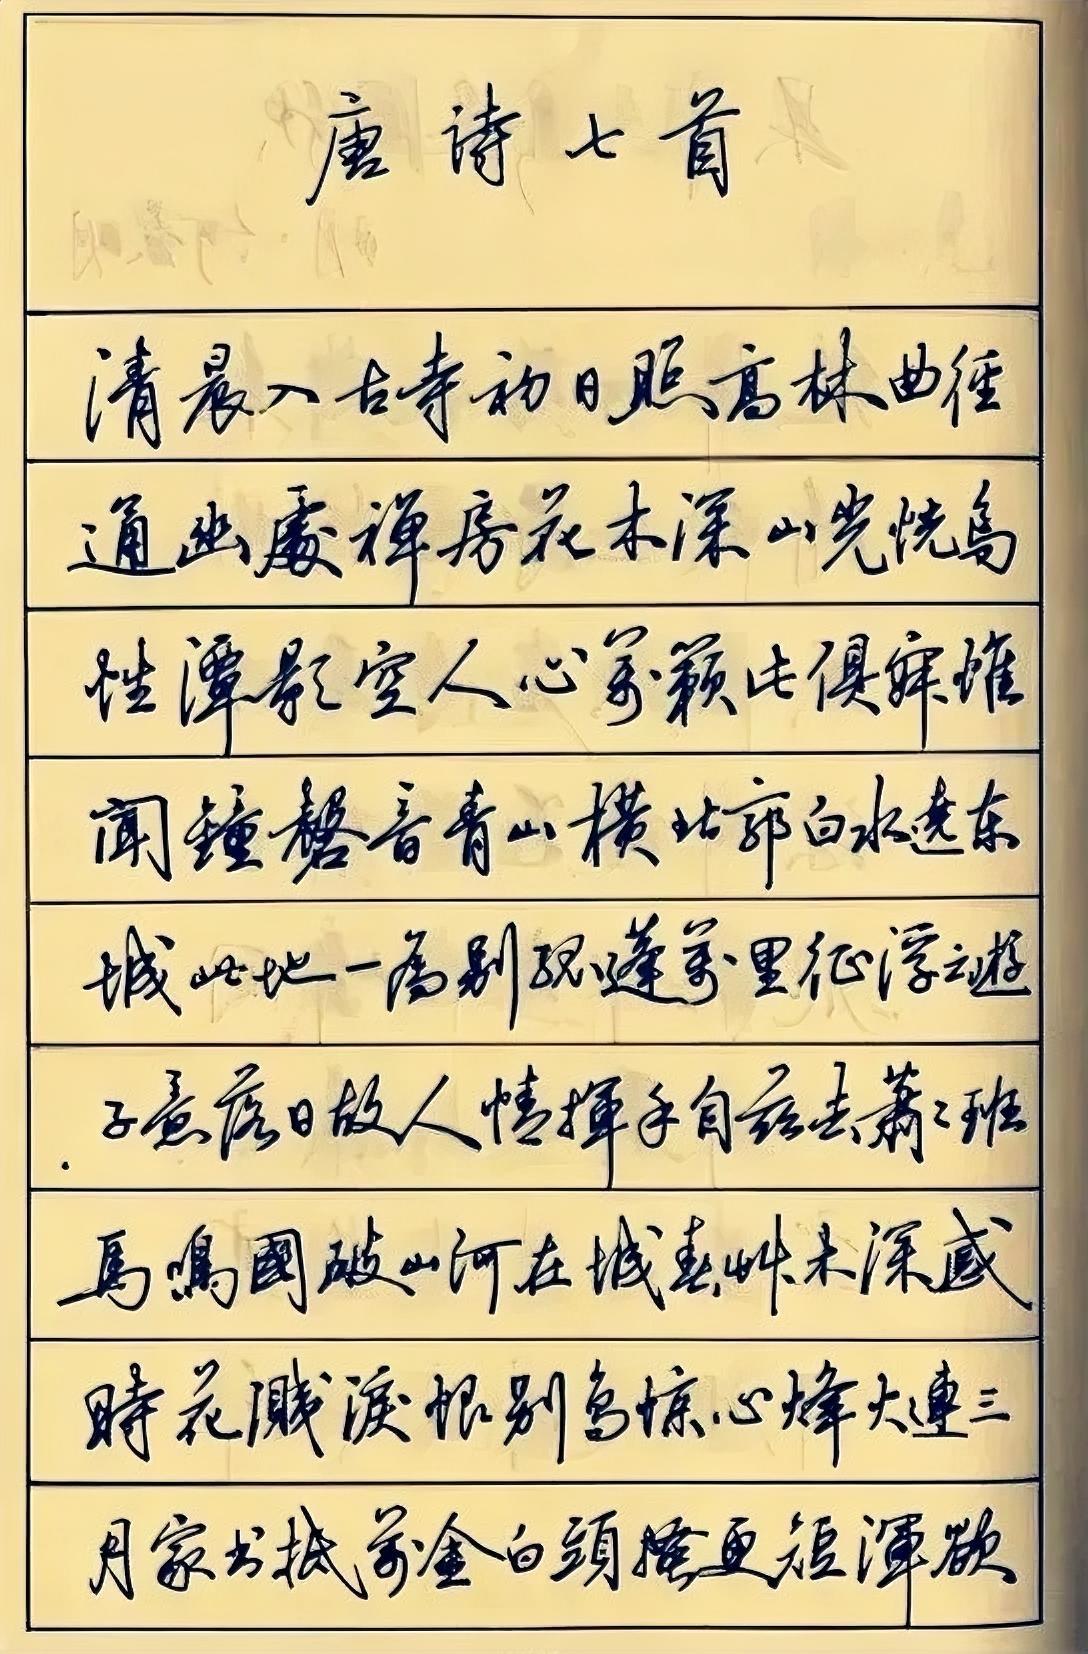 唐诗七首
清晨入古寺初日照高林曲径
通幽處禅房花木深山光悦鸟
性潭影空人心万籁此俱寂惟
闻鐘磬音青山横北郭白水遶东
城此地一为别孤蓬万里征浮云遊
子意落日故人情揮手自兹去萧々班
馬鳴國破山河在城春艸木深感
時花溅淚恨别鸟惊心烽火連三
月家书抵万金白頭搔更短渾欲